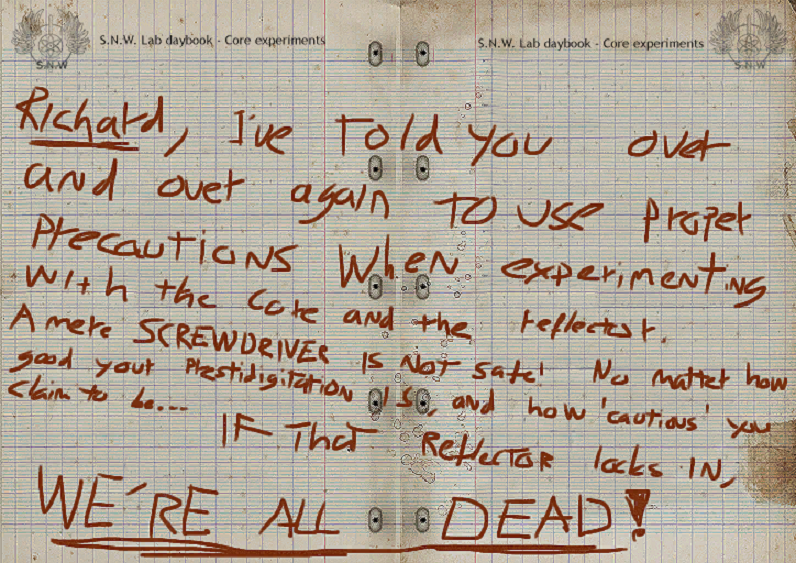 S.N.W. Lab daybook - Core experiments
S.N.W
S.N.W. Lab daybook - Core experiments
S.N.W
Richard, I've Told you over
and over again TO USE proper
Precautions When experimenting
With the Core and the reflector.
A mere SCREWDRIVER IS NOT safe! No matter how
good your Prestidigitation IS, and how 'cautious' you
claim to be...
IF That Reflector locks IN,
WE'RE ALL DEAD!